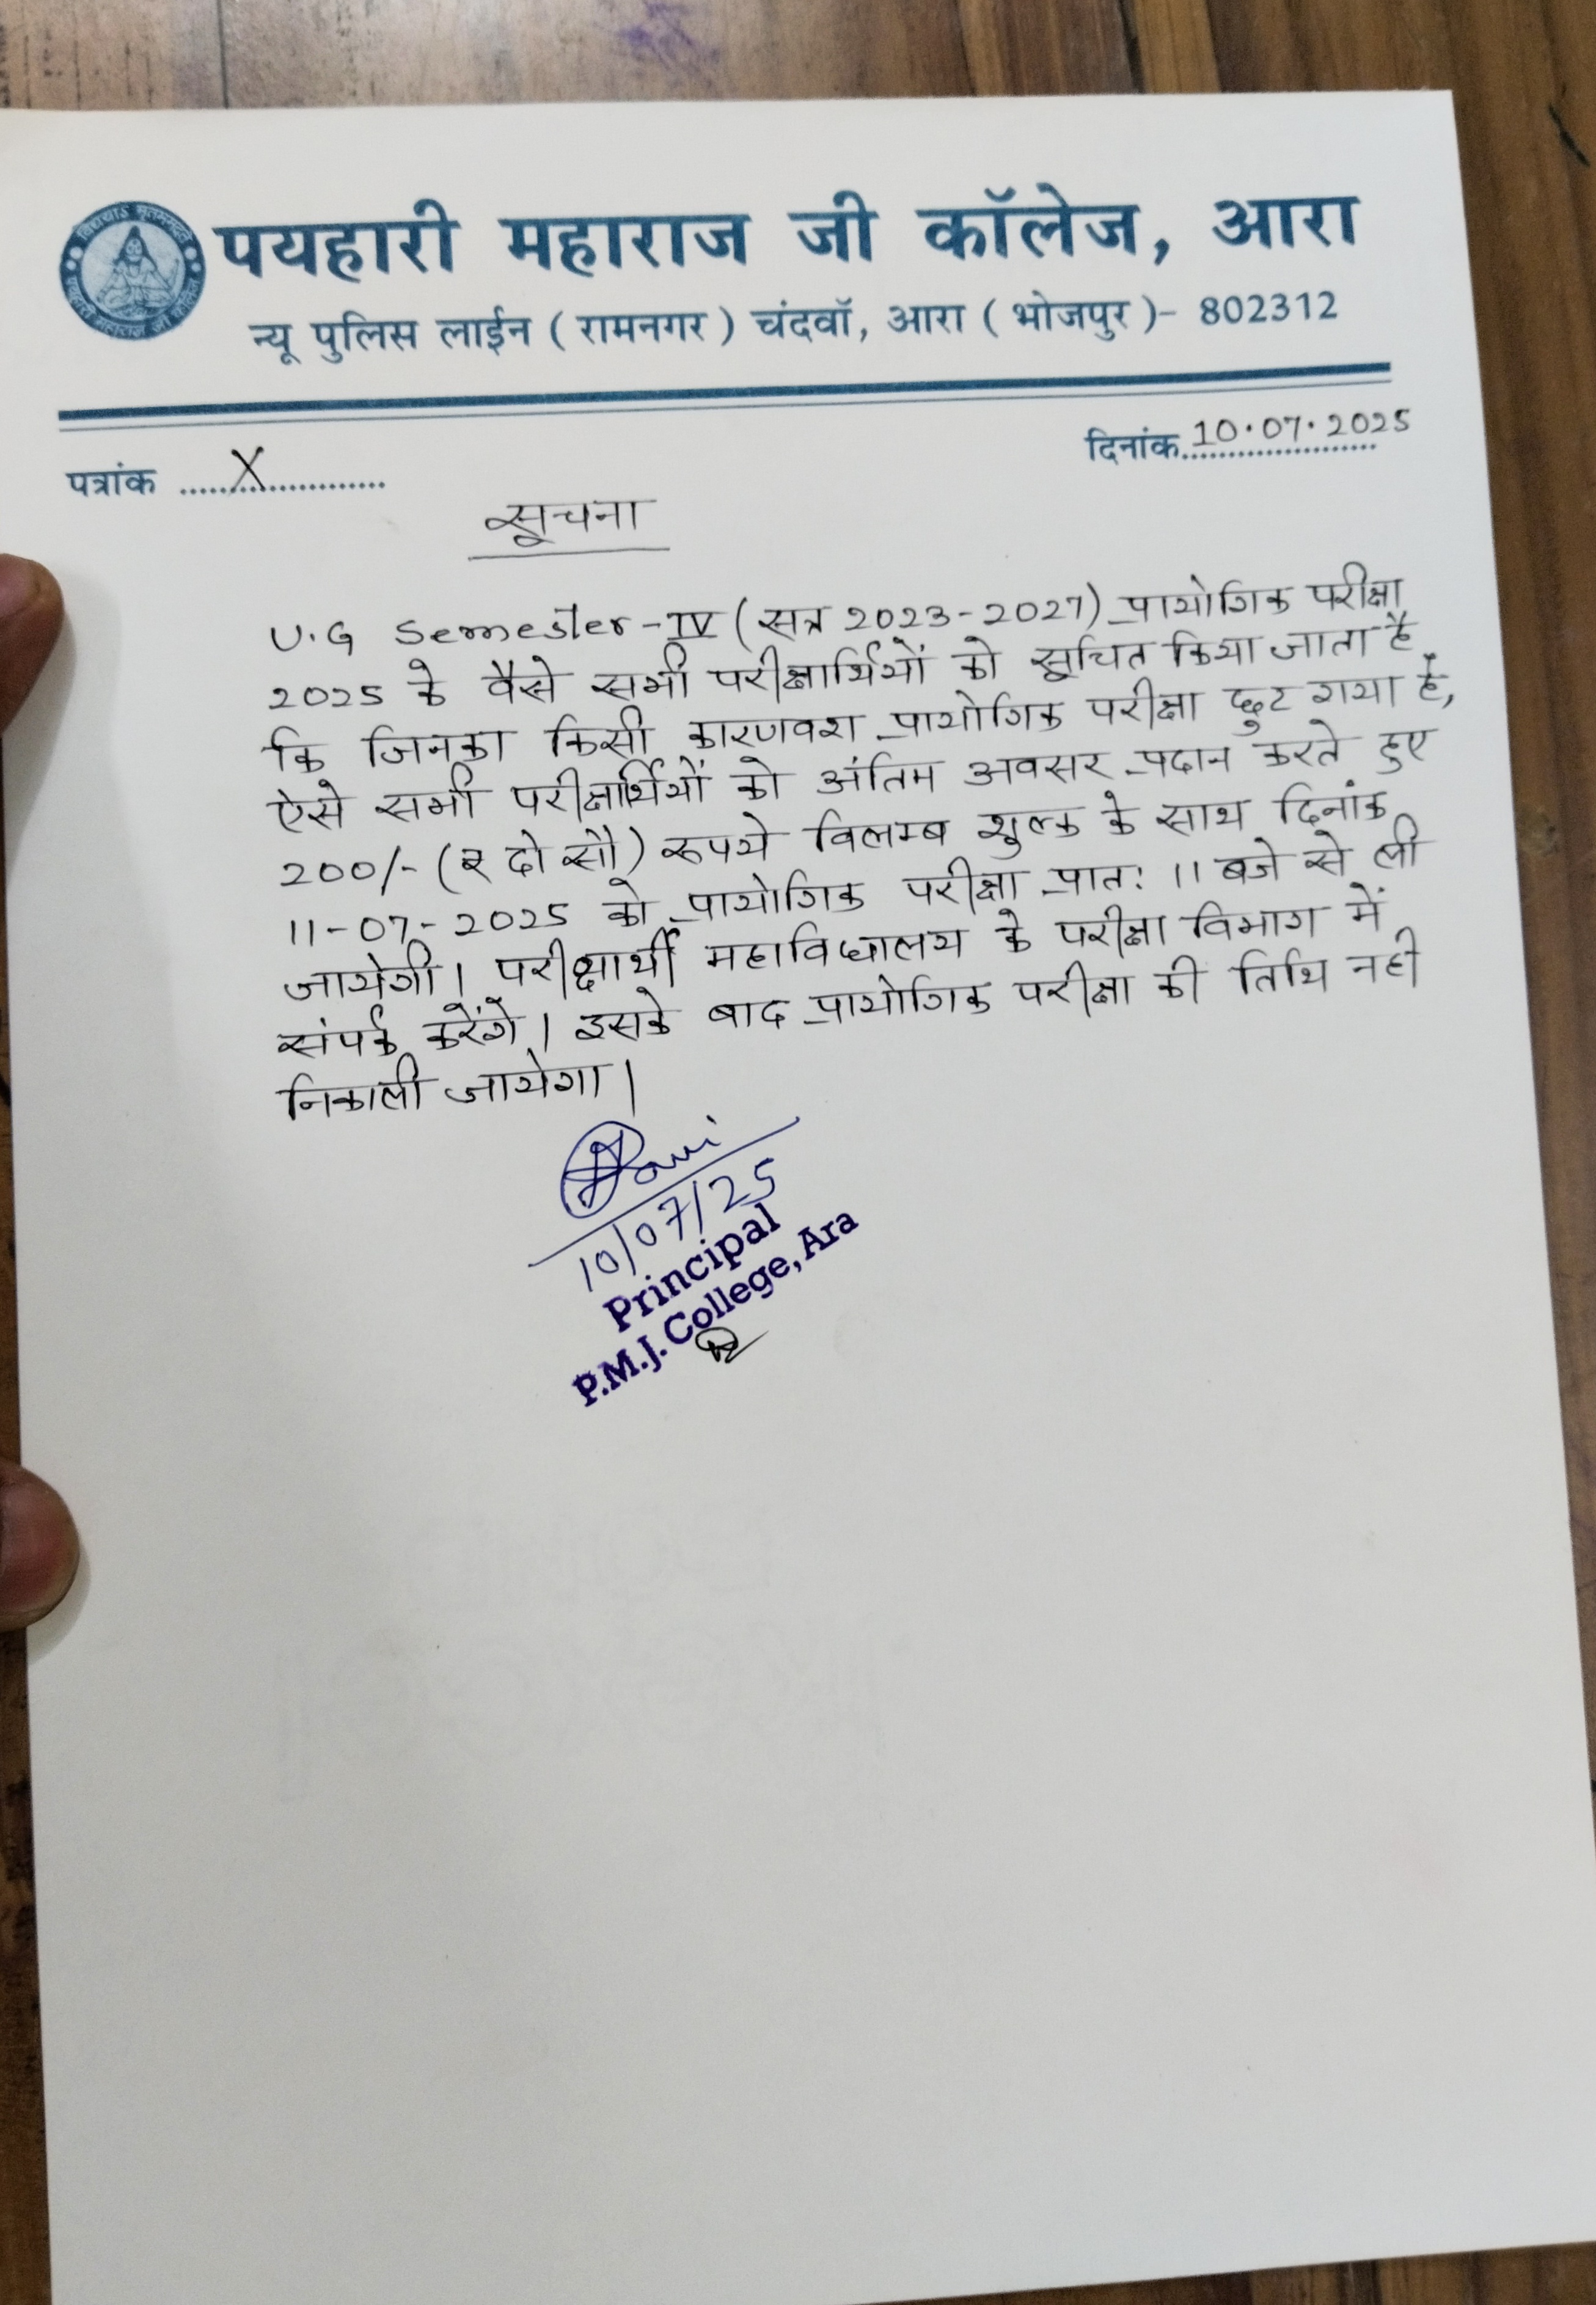 पयहारी महाराज जी कॉलेज, आरा
न्यू पुलिस लाईन ( रामनगर ) चंदवॉ, आरा ( भोजपुर )- 802312
पत्रांक .....X..................
दिनांक 10.07.2025
सूचना
U.G Semester-IV (सत्र 2023-2027) प्रायोगिक परीक्षा
2025 के वैसे सभी परीक्षार्थियों को सूचित किया जाता है
कि जिनका किसी कारणवश प्रायोगिक परीक्षा छुट गया है,
ऐसे सभी परीक्षार्थियों को अंतिम अवसर प्रदान करते हुए
200/- (₹ दो सौ) रूपये विलम्ब शुल्क के साथ दिनांक
11-07-2025 को प्रायोगिक परीक्षा प्रात: 11 बजे से ली
जायेगी। परीक्षार्थी महाविद्यालय के परीक्षा विभाग में
संपर्क करेंगे। इसके बाद प्रायोगिक परीक्षा की तिथि नही
निकाली जायेगा।
10/07/25
Principal
P.M.J. College, Ara